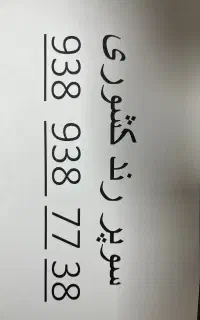 سوپر رند کشوری
938 938 77 38